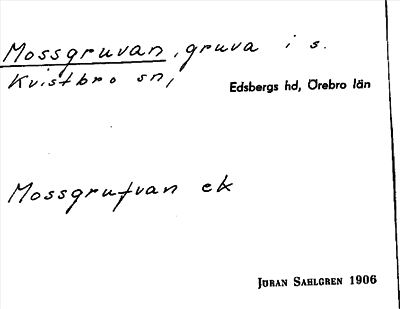 Mossgruvan, gruva i s.
Kvistbro sn,
Edsbergs hd, Örebro län
Mossgrufvan ek
JÖRAN SAHLGREN 1906